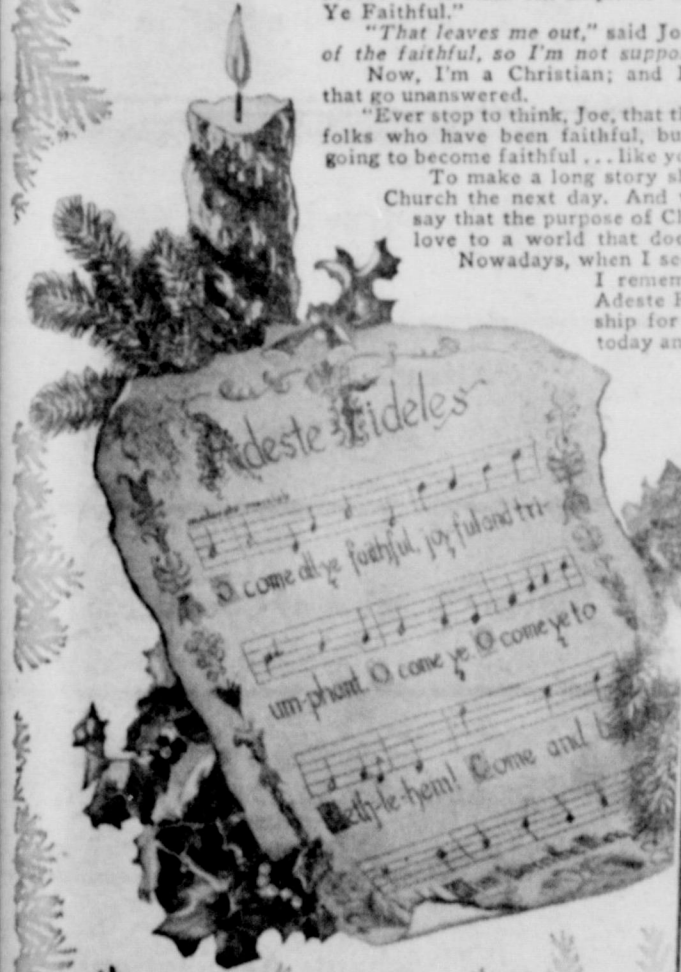 Ye Faithful."
"That leaves me out," said Jo
of the faithful, so I'm not suppo
Now, I'm a Christian; and I
that go unanswered.
"Ever stop to think, Joe, that t
folks who have been faithful, bu
going to become faithful ... like y
To make a long story s
Church the next day. And
say that the purpose of C
love to a world that doe
Nowadays, when I se
I remem
Adeste
ship for
today an
Adeste Fideles
O come all ye faithful, joy ful and tri-
um-phant. O come ye. O come ye to
Beth-le-hem! Come and b